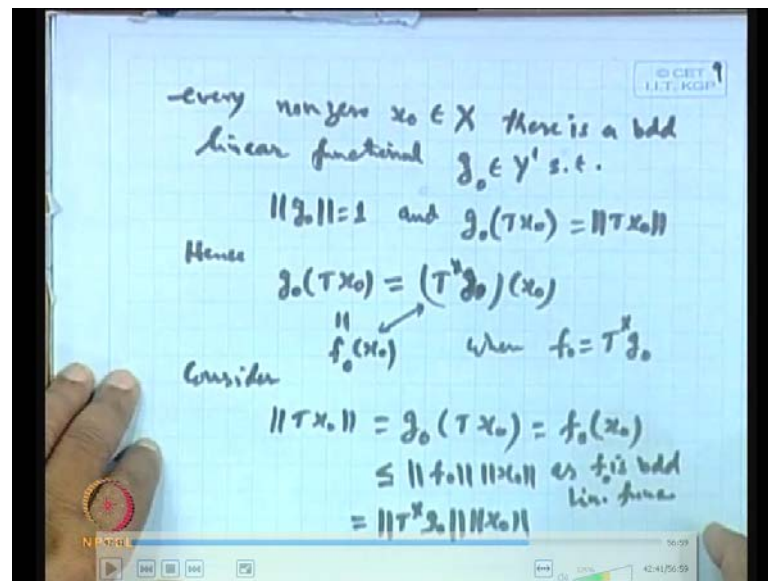 © CET
I.I.T. KGP
9
every non zero x₀ ∈ X there is a bdd
linear functional g₀ ∈ Y' s.t.
||g₀|| = 1 and g₀(Tx₀) = ||Tx₀||
Hence
g₀(Tx₀) = (T^x g₀)(x₀)
||
f₀(x₀) when f₀ = T^x g₀
Consider
||Tx₀|| = g₀(Tx₀) = f₀(x₀)
≤ ||f₀|| ||x₀|| as f₀ is bdd
lin. func
= ||T^x g₀|| ||x₀||
NPTEL
56:59
42:41/56:59